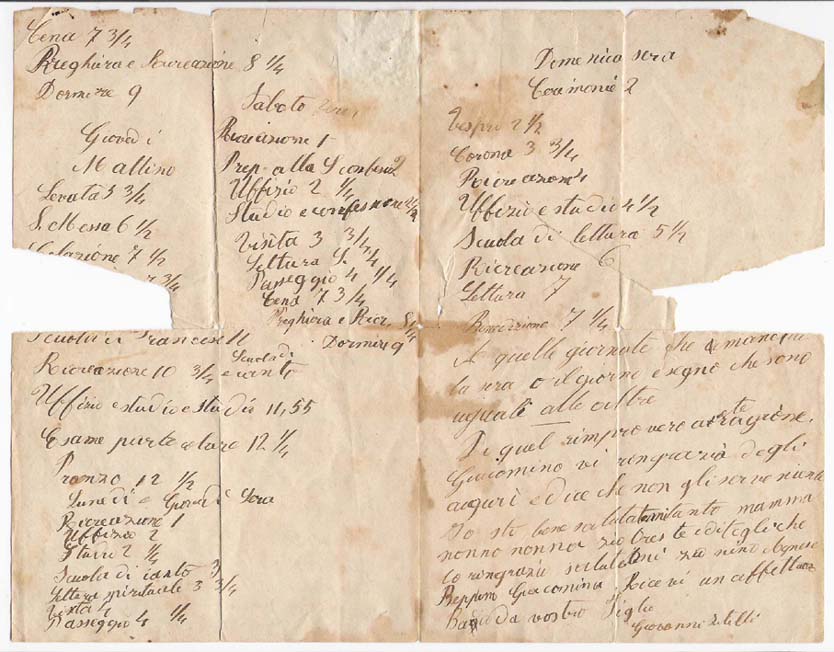 Cena 7 3/4
Preghiera e Ricreazione 8 1/4
Dormire 9
Giovedi
Mattino
Levata 5 3/4
S. Messa 6 1/2
Colazione 7 1/2
3/4
Scuola di Francese 11
Ricreazione 10 3/4 Scuola di canto
Uffizio e studio e studio 11,55
Esame particolare 12 1/4
Pranzo 12 1/2
Lunedi e Giovedi Sera
Ricreazione 1
Uffizio 2
Studio 2 1/4
Scuola di canto 3
Lettura spirituale 3 3/4
Visita 4
Passeggio 4 1/4
Sabato
Ricreazione 1
Prep. alla 2
Uffizio 2 1/4
Studio e confessione 2 1/2
Visita 3 3/4
Lettura S. 4
Passeggio 4 1/4
Cena 7 3/4
Preghiera e Ricr. 8 1/4
Dormire 9
Domenica sera
Cerimonie 2
Vespri 2 1/2
Corona 3 3/4
Ricreazion 4
Uffizio e studio 4 1/2
Scuola di lettura 5 1/2
Ricreazione 6
Lettura 7
7 1/4
A quelle giornate che manca
la sera o il giorno e segno che sono
uguali alle altre
Di quel rimprovero avete ragione.
Giacomino vi ringrazia degli
auguri e dice che non gli serve niente
Io sto bene salutatemi tanto mamma
nonno nonna zio ditegli che
lo ringrazio salutatemi zio nino Agnese
Peppino Giacomina Ricevi un affettuoso
da vostro Figlio
Giovanni